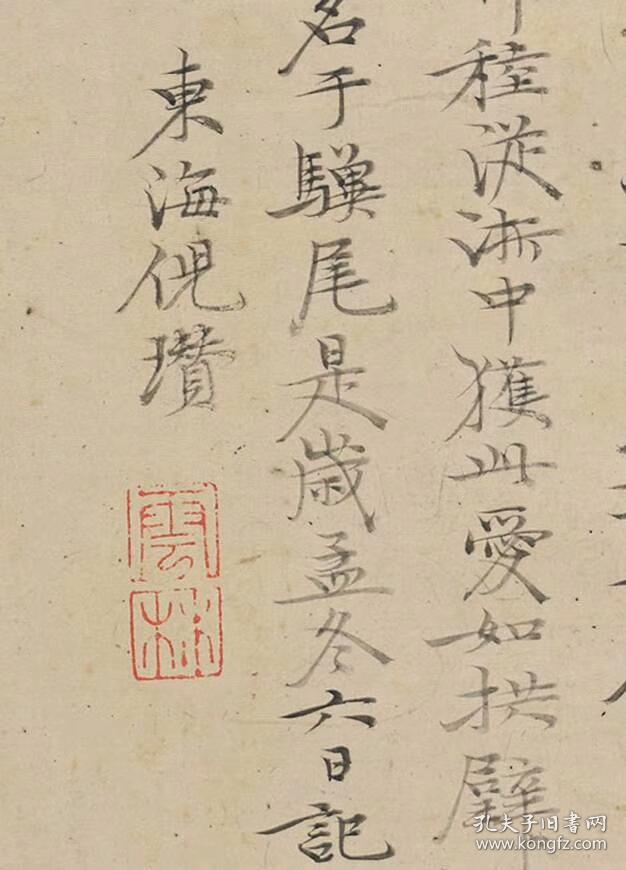 從浙中獲此愛如拱璧
名于驥尾是歲孟冬六日記
東海倪瓚
雲林
孔夫子旧书网
www.kongfz.com